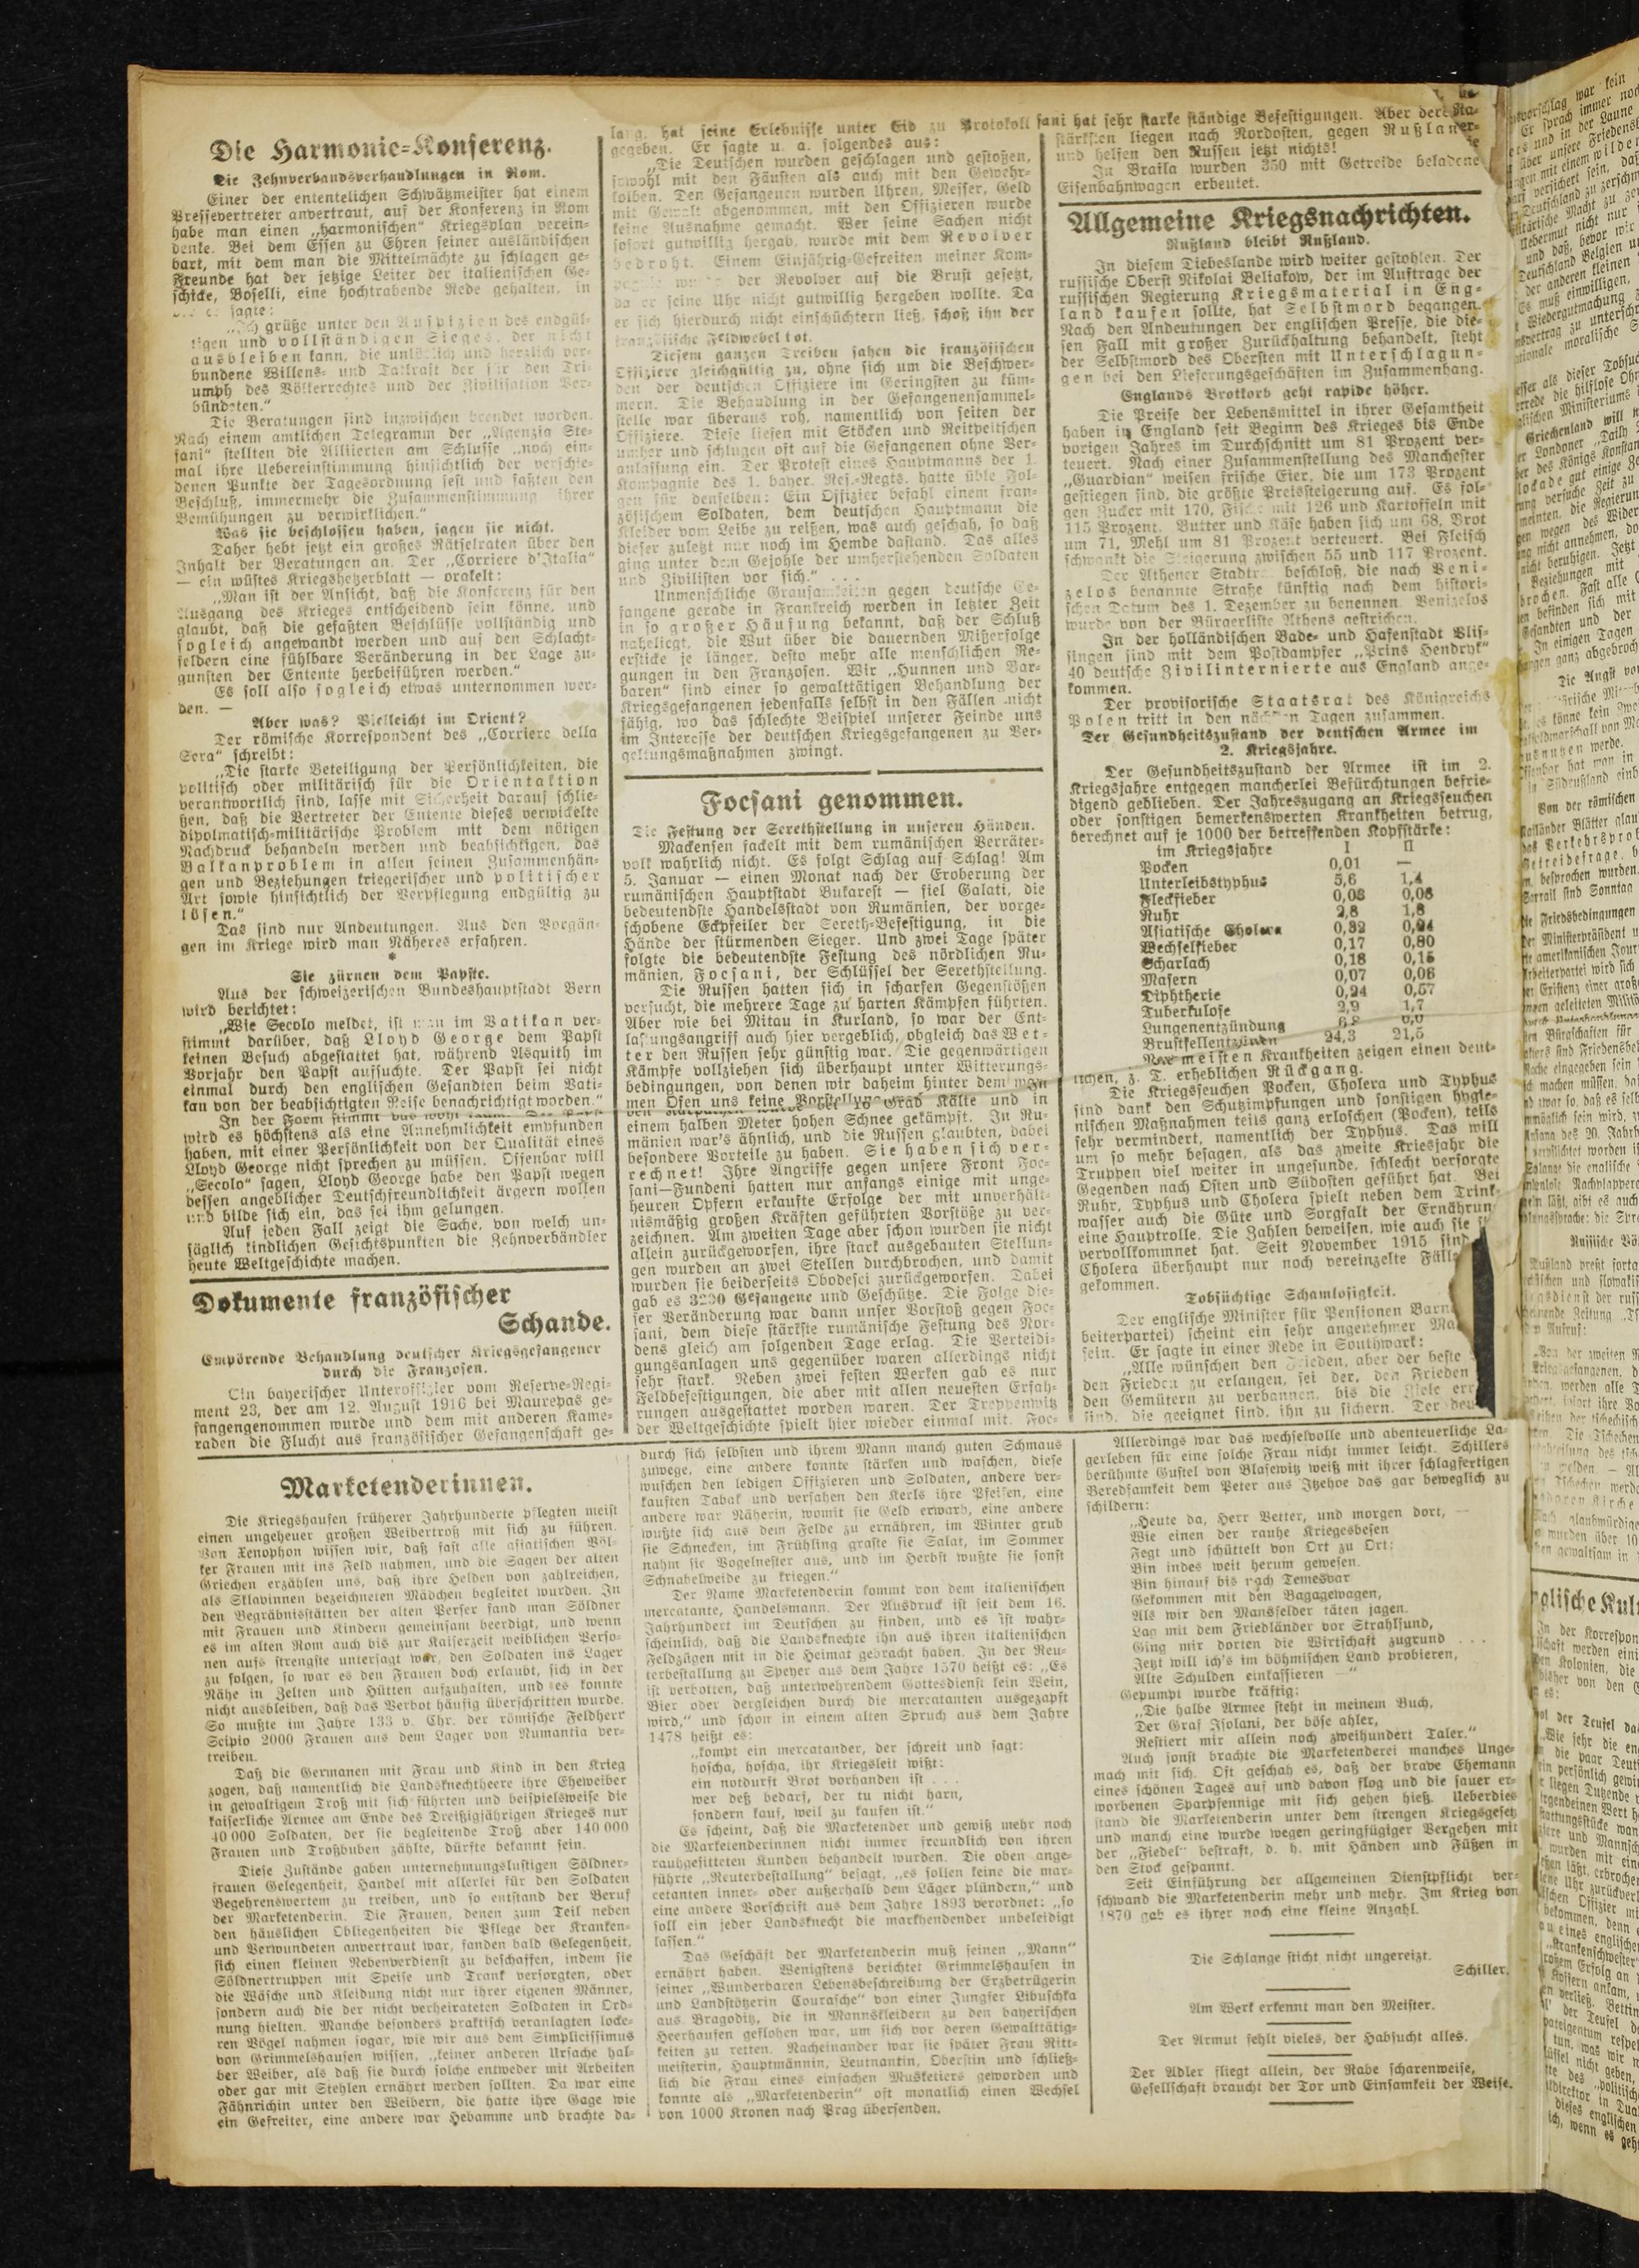 Die Harmonie-Konferenz.
Die Zehnverbandsverhandlungen in Rom.
Einer der ententelichen Schwätzmeister hat einem
Pressevertreter anvertraut, auf der Konferenz in Rom
habe man einen „harmonischen“ Kriegsplan verein-
denke. Bei dem Essen zu Ehren seiner ausländischen
bart, mit dem man die Mittelmächte zu schlagen ge-
Freunde hat der jetzige Leiter der italienischen Ge-
schicke, Boselli, eine hochtrabende Rede gehalten, in
sagte:
„Ich grüße unter den Auspizien des endgül-
tigen und vollständigen Sieges, der nicht
ausbleiben kann, die unlöslich und herzlich ver-
bundene Willens- und Tatkraft der für den Tri-
umph des Völkerrechtes und der Zivilisation Ver-
bündeten.“
Die Beratungen sind inzwischen beendet worden.
Nach einem amtlichen Telegramm der „Agenzia Ste-
fani“ stellten die Alliierten am Schlusse „noch ein-
mal ihre Uebereinstimmung hinsichtlich der verschie-
denen Punkte der Tagesordnung fest und faßten den
Beschluß, immermehr die Zusammenstimmung ihrer
Bemühungen zu verwirklichen.“
Was sie beschlossen haben, sagen sie nicht.
Daher hebt jetzt ein großes Rätselraten über den
Inhalt der Beratungen an. Der „Corriere d'Italia“
— ein wüstes Kriegshetzerblatt — orakelt:
„Man ist der Ansicht, daß die Konferenz für den
Ausgang des Krieges entscheidend sein könne, und
glaubt, daß die gefaßten Beschlüsse vollständig und
sogleich angewandt werden und auf den Schlacht-
feldern eine fühlbare Veränderung in der Lage zu-
gunsten der Entente herbeiführen werden.“
Es soll also sogleich etwas unternommen wer-
den. —
Aber was? Vielleicht im Orient?
Der römische Korrespondent des „Corriere della
Sera“ schreibt:
„Die starke Beteiligung der Persönlichkeiten, die
politisch oder militärisch für die Orientaktion
verantwortlich sind, lasse mit Sicherheit darauf schlie-
ßen, daß die Vertreter der Entente dieses verwickelte
dipolmatisch-militärische Problem mit dem nötigen
Nachdruck behandeln werden und beabsichtigen, das
Balkanproblem in allen seinen Zusammenhän-
gen und Beziehungen kriegerischer und politischer
Art sowie hinsichtlich der Verpflegung endgültig zu
lösen.“
Das sind nur Andeutungen. Aus den Vorgän-
gen im Kriege wird man Näheres erfahren.
*
Sie zürnen dem Papste.
Aus der schweizerischen Bundeshauptstadt Bern
wird berichtet:
„Wie Secolo meldet, ist man im Vatikan ver-
stimmt darüber, daß Lloyd George dem Papst
keinen Besuch abgestattet hat, während Asquith im
Vorjahr den Papst aufsuchte. Der Papst sei nicht
einmal durch den englischen Gesandten beim Vati-
kan von der beabsichtigten Reise benachrichtigt worden.“
In der Form stimmt das wohl kaum. Der Papst
wird es höchstens als eine Annehmlichkeit empfunden
haben, mit einer Persönlichkeit von der Qualität eines
Lloyd George nicht sprechen zu müssen. Offenbar will
„Secolo“ sagen, Lloyd George habe den Papst wegen
dessen angeblicher Deutschfreundlichkeit ärgern wollen
und bilde sich ein, das sei ihm gelungen.
Auf jeden Fall zeigt die Sache, von welch un-
säglich kindlichen Gesichtspunkten die Zehnverbändler
heute Weltgeschichte machen.
Dokumente französischer
Schande.
Empörende Behandlung deutscher Kriegsgefangener
durch die Franzosen.
Ein bayerischer Unteroffizier vom Reserve-Regi-
ment 23, der am 12. August 1916 bei Maurepas ge-
fangengenommen wurde und dem mit anderen Kame-
raden die Flucht aus französischer Gefangenschaft ge-
lang, hat seine Erlebnisse unter Eid zu Protokoll
gegeben. Er sagte u. a. folgendes aus:
„Die Deutschen wurden geschlagen und gestoßen,
sowohl mit den Fäusten als auch mit den Gewehr-
kolben. Den Gefangenen wurden Uhren, Messer, Geld
mit Gewalt abgenommen, mit den Offizieren wurde
keine Ausnahme gemacht. Wer seine Sachen nicht
sofort gutwillig hergab, wurde mit dem Revolver
bedroht. Einem Einjährig-Gefreiten meiner Kom-
wurde der Revolver auf die Brust gesetzt,
da er seine Uhr nicht gutwillig hergeben wollte. Da
er sich hierdurch nicht einschüchtern ließ, schoß ihn der
französische Feldwebel tot.
Diesem ganzen Treiben sahen die französischen
Offiziere gleichgültig zu, ohne sich um die Beschwer-
den der deutschen Offiziere im Geringsten zu küm-
mern. Die Behandlung in der Gefangenensammel-
stelle war überaus roh, namentlich von seiten der
Offiziere. Diese liefen mit Stöcken und Reitpeitschen
umher und schlugen oft auf die Gefangenen ohne Ver-
anlassung ein. Der Protest eines Hauptmanns der 1.
Kompagnie des 1. bayer. Res.-Regts. hatte üble Fol-
gen für denselben: Ein Offizier befahl einem fran-
zösischem Soldaten, dem deutschen Hauptmann die
Kleider vom Leibe zu reißen, was auch geschah, so daß
dieser zuletzt nur noch im Hemde dastand. Das alles
ging unter dem Gejohle der umherstehenden Soldaten
und Zivilisten vor sich.“ . . .
Unmenschliche Grausamkeiten gegen deutsche Ge-
fangene gerade in Frankreich werden in letzter Zeit
in so großer Häufung bekannt, daß der Schluß
naheliegt, die Wut über die dauernden Mißerfolge
ersticke je länger, desto mehr alle menschlichen Re-
gungen in den Franzosen. Wir „Hunnen und Bar-
baren“ sind einer so gewalttätigen Behandlung der
Kriegsgefangenen jedenfalls selbst in den Fällen nicht
fähig, wo das schlechte Beispiel unserer Feinde uns
im Interesse der deutschen Kriegsgefangenen zu Ver-
geltungsmaßnahmen zwingt.
Focsani genommen.
Die Festung der Serethstellung in unseren Händen.
Mackensen fackelt mit dem rumänischen Verräter-
volk wahrlich nicht. Es folgt Schlag auf Schlag! Am
5. Januar — einen Monat nach der Eroberung der
rumänischen Hauptstadt Bukarest — fiel Galati, die
bedeutendste Handelsstadt von Rumänien, der vorge-
schobene Eckpfeiler der Sereth-Befestigung, in die
Hände der stürmenden Sieger. Und zwei Tage später
folgte die bedeutendste Festung des nördlichen Ru-
mänien, Focsani, der Schlüssel der Serethstellung.
Die Russen hatten sich in scharfen Gegenstößen
versucht, die mehrere Tage zu harten Kämpfen führten.
Aber wie bei Mitau in Kurland, so war der Ent-
lastungsangriff auch hier vergeblich, obgleich das Wet-
ter den Russen sehr günstig war. Die gegenwärtigen
Kämpfe vollziehen sich überhaupt unter Witterungs-
bedingungen, von denen wir daheim hinter dem
men Ofen uns keine
16 Grad Kälte und in
einem halben Meter hohen Schnee gekämpft. In Ru-
mänien war's ähnlich, und die Russen glaubten, dabei
besondere Vorteile zu haben. Sie haben sich ver-
rechnet! Ihre Angriffe gegen unsere Front Foc-
sani—Fundeni hatten nur anfangs einige mit unge-
heuren Opfern erkaufte Erfolge der mit unverhält-
nismäßig großen Kräften geführten Vorstöße zu ver-
zeichnen. Am zweiten Tage aber schon wurden sie nicht
allein zurückgeworfen, ihre stark ausgebauten Stellun-
gen wurden an zwei Stellen durchbrochen, und damit
wurden sie beiderseits Obodesei zurückgeworfen. Dabei
gab es 3230 Gefangene und Geschütze. Die Folge die-
ser Veränderung war dann unser Vorstoß gegen Foc-
sani, dem diese stärkste rumänische Festung des Nor-
dens gleich am folgenden Tage erlag. Die Verteidi-
gungsanlagen uns gegenüber waren allerdings nicht
sehr stark. Neben zwei festen Werken gab es nur
Feldbefestigungen, die aber mit allen neuesten Erfah-
rungen ausgestattet worden waren. Der Treppenwitz
der Weltgeschichte spielt hier wieder einmal mit. Foc-
sani hat sehr starke ständige Befestigungen. Aber der
stärksten liegen nach Nordosten, gegen Rußland
und helfen den Russen jetzt nichts!
In Braila wurden 350 mit Getreide beladene
Eisenbahnwagen erbeutet.
Allgemeine Kriegsnachrichten.
Rußland bleibt Rußland.
In diesem Diebeslande wird weiter gestohlen. Der
russische Oberst Nikolai Beliakow, der im Auftrage der
russischen Regierung Kriegsmaterial in Eng-
land kaufen sollte, hat Selbstmord begangen.
Nach den Andeutungen der englischen Presse, die die-
sen Fall mit großer Zurückhaltung behandelt, steht
der Selbstmord des Obersten mit Unterschlagun-
gen bei den Lieferungsgeschäften im Zusammenhang.
Englands Brotkorb geht rapide höher.
Die Preise der Lebensmittel in ihrer Gesamtheit
haben in England seit Beginn des Krieges bis Ende
vorigen Jahres im Durchschnitt um 81 Prozent ver-
teuert. Nach einer Zusammenstellung des Manchester
„Guardian“ weisen frische Eier, die um 173 Prozent
gestiegen sind, die größte Preissteigerung auf. Es fol-
gen Zucker mit 170, Fische mit 126 und Kartoffeln mit
115 Prozent. Butter und Käse haben sich um 68, Brot
um 71, Mehl um 81 Prozent verteuert. Bei Fleisch
schwankt die Steigerung zwischen 55 und 117 Prozent.
Der Athener Stadtrat beschloß, die nach Veni-
zelos benannte Straße künftig nach dem histori-
schen Datum des 1. Dezember zu benennen. Venizelos
wurde von der Bürgerliste Athens gestrichen.
In der holländischen Bade- und Hafenstadt Vlis-
singen sind mit dem Postdampfer „Prins Hendryk“
40 deutsche Zivilinternierte aus England ange-
kommen.
Der provisorische Staatsrat des Königreichs
Polen tritt in den nächsten Tagen zusammen.
Der Gesundheitszustand der deutschen Armee im
2. Kriegsjahre.
Der Gesundheitszustand der Armee ist im 2.
Kriegsjahre entgegen mancherlei Befürchtungen befrie-
digend geblieben. Der Jahreszugang an Kriegsseuchen
oder sonstigen bemerkenswerten Krankheiten betrug,
berechnet auf je 1000 der betreffenden Kopfstärke:
im Kriegsjahre I II
Pocken 0,01 —
Unterleibstyphus 5,6 1,4
Fleckfieber 0,08 0,08
Ruhr 2,8 1,8
Asiatische Cholera 0,32 0,24
Wechselfieber 0,17 0,80
Scharlach 0,18 0,15
Masern 0,07 0,08
Diphtherie 0,24 0,57
Tuberkulose 2,9 1,7
Lungenentzündung
Brustfellentzünden 24,3 21,5
meisten Krankheiten zeigen einen deut-
lichen, z. T. erheblichen Rückgang.
Die Kriegsseuchen Pocken, Cholera und Typhus
sind dank den Schutzimpfungen und sonstigen hygie-
nischen Maßnahmen teils ganz erloschen (Pocken), teils
sehr vermindert, namentlich der Typhus. Das will
um so mehr besagen, als das zweite Kriesjahr die
Truppen viel weiter in ungesunde, schlecht versorgte
Gegenden nach Osten und Südosten geführt hat. Bei
Ruhr, Typhus und Cholera spielt neben dem Trink-
wasser auch die Güte und Sorgfalt der Ernährun
eine Hauptrolle. Die Zahlen beweisen, wie auch sie
vervollkommnet hat. Seit November 1915 sind
Cholera überhaupt nur noch vereinzelte Fälle
gekommen.
Tobsüchtige Schamlosigkeit.
Der englische Minister für Pensionen Barn
beiterpartei) scheint ein sehr angenehmer Ma
sein. Er sagte in einer Rede in Southwark:
„Alle wünschen den Frieden, aber der beste
den Frieden zu erlangen, sei der, den Frieden
den Gemütern zu verbannen, bis die Ziele err
sind, die geeignet sind, ihn zu sichern. Der deu
Marketenderinnen.
Die Kriegshaufen früherer Jahrhunderte pflegten meist
einen ungeheuer großen Weibertroß mit sich zu führen.
Von Xenophon wissen wir, daß fast alle asiatischen Völ-
ker Frauen mit ins Feld nahmen, und die Sagen der alten
Griechen erzählen uns, daß ihre Helden von zahlreichen,
als Sklavinnen bezeichneten Mädchen begleitet wurden. In
den Begräbnisstätten der alten Perser fand man Söldner
mit Frauen und Kindern gemeinsam beerdigt, und wenn
es im alten Rom auch bis zur Kaiserzeit weiblichen Perso-
nen aufs strengste untersagt war, den Soldaten ins Lager
zu folgen, so war es den Frauen doch erlaubt, sich in der
Nähe in Zelten und Hütten aufzuhalten, und es konnte
nicht ausbleiben, daß das Verbot häufig überschritten wurde.
So mußte im Jahre 133 v. Chr. der römische Feldherr
Scipio 2000 Frauen aus dem Lager von Numantia ver-
treiben.
Daß die Germanen mit Frau und Kind in den Krieg
zogen, daß namentlich die Landsknechtheere ihre Eheweiber
in gewaltigem Troß mit sich führten und beispielsweise die
kaiserliche Armee am Ende des Dreißigjährigen Krieges nur
40 000 Soldaten, der sie begleitende Troß aber 140 000
Frauen und Troßbuben zählte, dürfte bekannt sein.
Diese Zustände gaben unternehmungslustigen Söldner-
frauen Gelegenheit, Handel mit allerlei für den Soldaten
Begehrenswertem zu treiben, und so entstand der Beruf
der Marketenderin. Die Frauen, denen zum Teil neben
den häuslichen Obliegenheiten die Pflege der Kranken-
und Verwundeten anvertraut war, fanden bald Gelegenheit,
sich einen kleinen Nebenverdienst zu beschaffen, indem sie
Söldnertruppen mit Speise und Trank versorgten, oder
die Wäsche und Kleidung nicht nur ihrer eigenen Männer,
sondern auch die der nicht verheirateten Soldaten in Ord-
nung hielten. Manche besonders praktisch veranlagten locke-
ren Vögel nahmen sogar, wie wir aus dem Simplicissimus
von Grimmelshausen wissen, „keiner anderen Ursache hal-
ber Weiber, als daß sie durch solche entweder mit Arbeiten
oder gar mit Stehlen ernährt werden sollten. Da war eine
Fähnrichin unter den Weibern, die hatte ihre Gage wie
ein Gefreiter, eine andere war Hebamme und brachte da-
durch sich selbsten und ihrem Mann manch guten Schmaus
zuwege, eine andere konnte stärken und waschen, diese
wuschen den ledigen Offizieren und Soldaten, andere ver-
kauften Tabak und versahen den Kerls ihre Pfeifen, eine
andere war Näherin, womit sie Geld erwarb, eine andere
wußte sich aus dem Felde zu ernähren, im Winter grub
sie Schnecken, im Frühling graste sie Salat, im Sommer
nahm sie Vogelnester aus, und im Herbst wußte sie sonst
Schnabelweide zu kriegen.“
Der Name Marketenderin kommt von dem italienischen
mercatante, Handelsmann. Der Ausdruck ist seit dem 16.
Jahrhundert im Deutschen zu finden, und es ist wahr-
scheinlich, daß die Landsknechte ihn aus ihren italienischen
Feldzügen mit in die Heimat gebracht haben. In der Reu-
terbestallung zu Speyer aus dem Jahre 1570 heißt es: „Es
ist verbotten, daß unterwehrendem Gottesdienst kein Wein,
Bier oder dergleichen durch die mercatanten ausgezapft
wird,“ und schon in einem alten Spruch aus dem Jahre
1478 heißt es:
„kompt ein mercatander, der schreit und sagt:
hoscha, hoscha, ihr Kriegsleit wißt:
ein notdurft Brot vorhanden ist . . .
wer deß bedarf, der tu nicht harn,
sondern kauf, weil zu kaufen ist.“
Es scheint, daß die Marketender und gewiß mehr noch
die Marketenderinnen nicht immer freundlich von ihren
rauhgesitteten Kunden behandelt wurden. Die oben ange-
führte „Reuterbestallung“ besagt, „es sollen keine die mar-
cetanten inner- oder außerhalb dem Läger plündern,“ und
eine andere Vorschrift aus dem Jahre 1893 verordnet: „so
soll ein jeder Landsknecht die markhendender unbeleidigt
lassen.“
Das Geschäft der Marketenderin muß seinen „Mann“
ernährt haben. Wenigstens berichtet Grimmelshausen in
seiner „Wunderbaren Lebensbeschreibung der Erzbetrügerin
und Landstötzerin Courasche“ von einer Jungfer Libuschka
aus Bragoditz, die in Mannskleidern zu den bayerischen
Heerhaufen geflohen war, um sich vor deren Gewalttätig-
keiten zu retten. Nacheinander war sie später Frau Ritt-
meisterin, Hauptmännin, Leutnantin, Oberstin und schließ-
lich die Frau eines einfachen Musketiers geworden und
konnte als „Marketenderin“ oft monatlich einen Wechsel
von 1000 Kronen nach Prag übersenden.
Allerdings war das wechselvolle und abenteuerliche La-
gerleben für eine solche Frau nicht immer leicht. Schillers
berühmte Gustel von Blasewitz weiß mit ihrer schlagfertigen
Beredsamkeit dem Peter aus Itzehoe das gar beweglich zu
schildern:
„Heute da, Herr Vetter, und morgen dort, —
Wie einen der rauhe Kriegesbesen
Fegt und schüttelt von Ort zu Ort;
Bin indes weit herum gewesen.
Bin hinauf bis nach Temesvar
Gekommen mit den Bagagewagen,
Als wir den Mansfelder täten jagen.
Lag mit dem Friedländer vor Stralsund,
Ging mir dorten die Wirtschaft zugrund . . .
Jetzt will ich's im böhmischen Land probieren,
Alte Schulden einkassieren —“
Gepumpt wurde kräftig:
„Die halbe Armee steht in meinem Buch,
Der Graf Isolani, der böse ahler,
Restiert mir allein noch zweihundert Taler.“
Auch sonst brachte die Marketenderei manches Unge-
mach mit sich. Oft geschah es, daß der brave Ehemann
eines schönen Tages auf und davon flog und die sauer er-
worbenen Sparpfennige mit sich gehen hieß. Ueberdies
stand die Marketenderin unter dem strengen Kriegsgesetz
und manch eine wurde wegen geringfügiger Vergehen mit
der „Fiedel“ bestraft, d. h. mit Händen und Füßen in
den Stock gespannt.
Seit Einführung der allgemeinen Dienstpflicht ver-
schwand die Marketenderin mehr und mehr. Im Krieg von
1870 gab es ihrer noch eine kleine Anzahl.
Die Schlange sticht nicht ungereizt.
Schiller.
Am Werk erkennt man den Meister.
Der Armut fehlt vieles, der Habsucht alles.
Der Adler fliegt allein, der Rabe scharenweise,
Gesellschaft braucht der Tor und Einsamkeit der Weise.